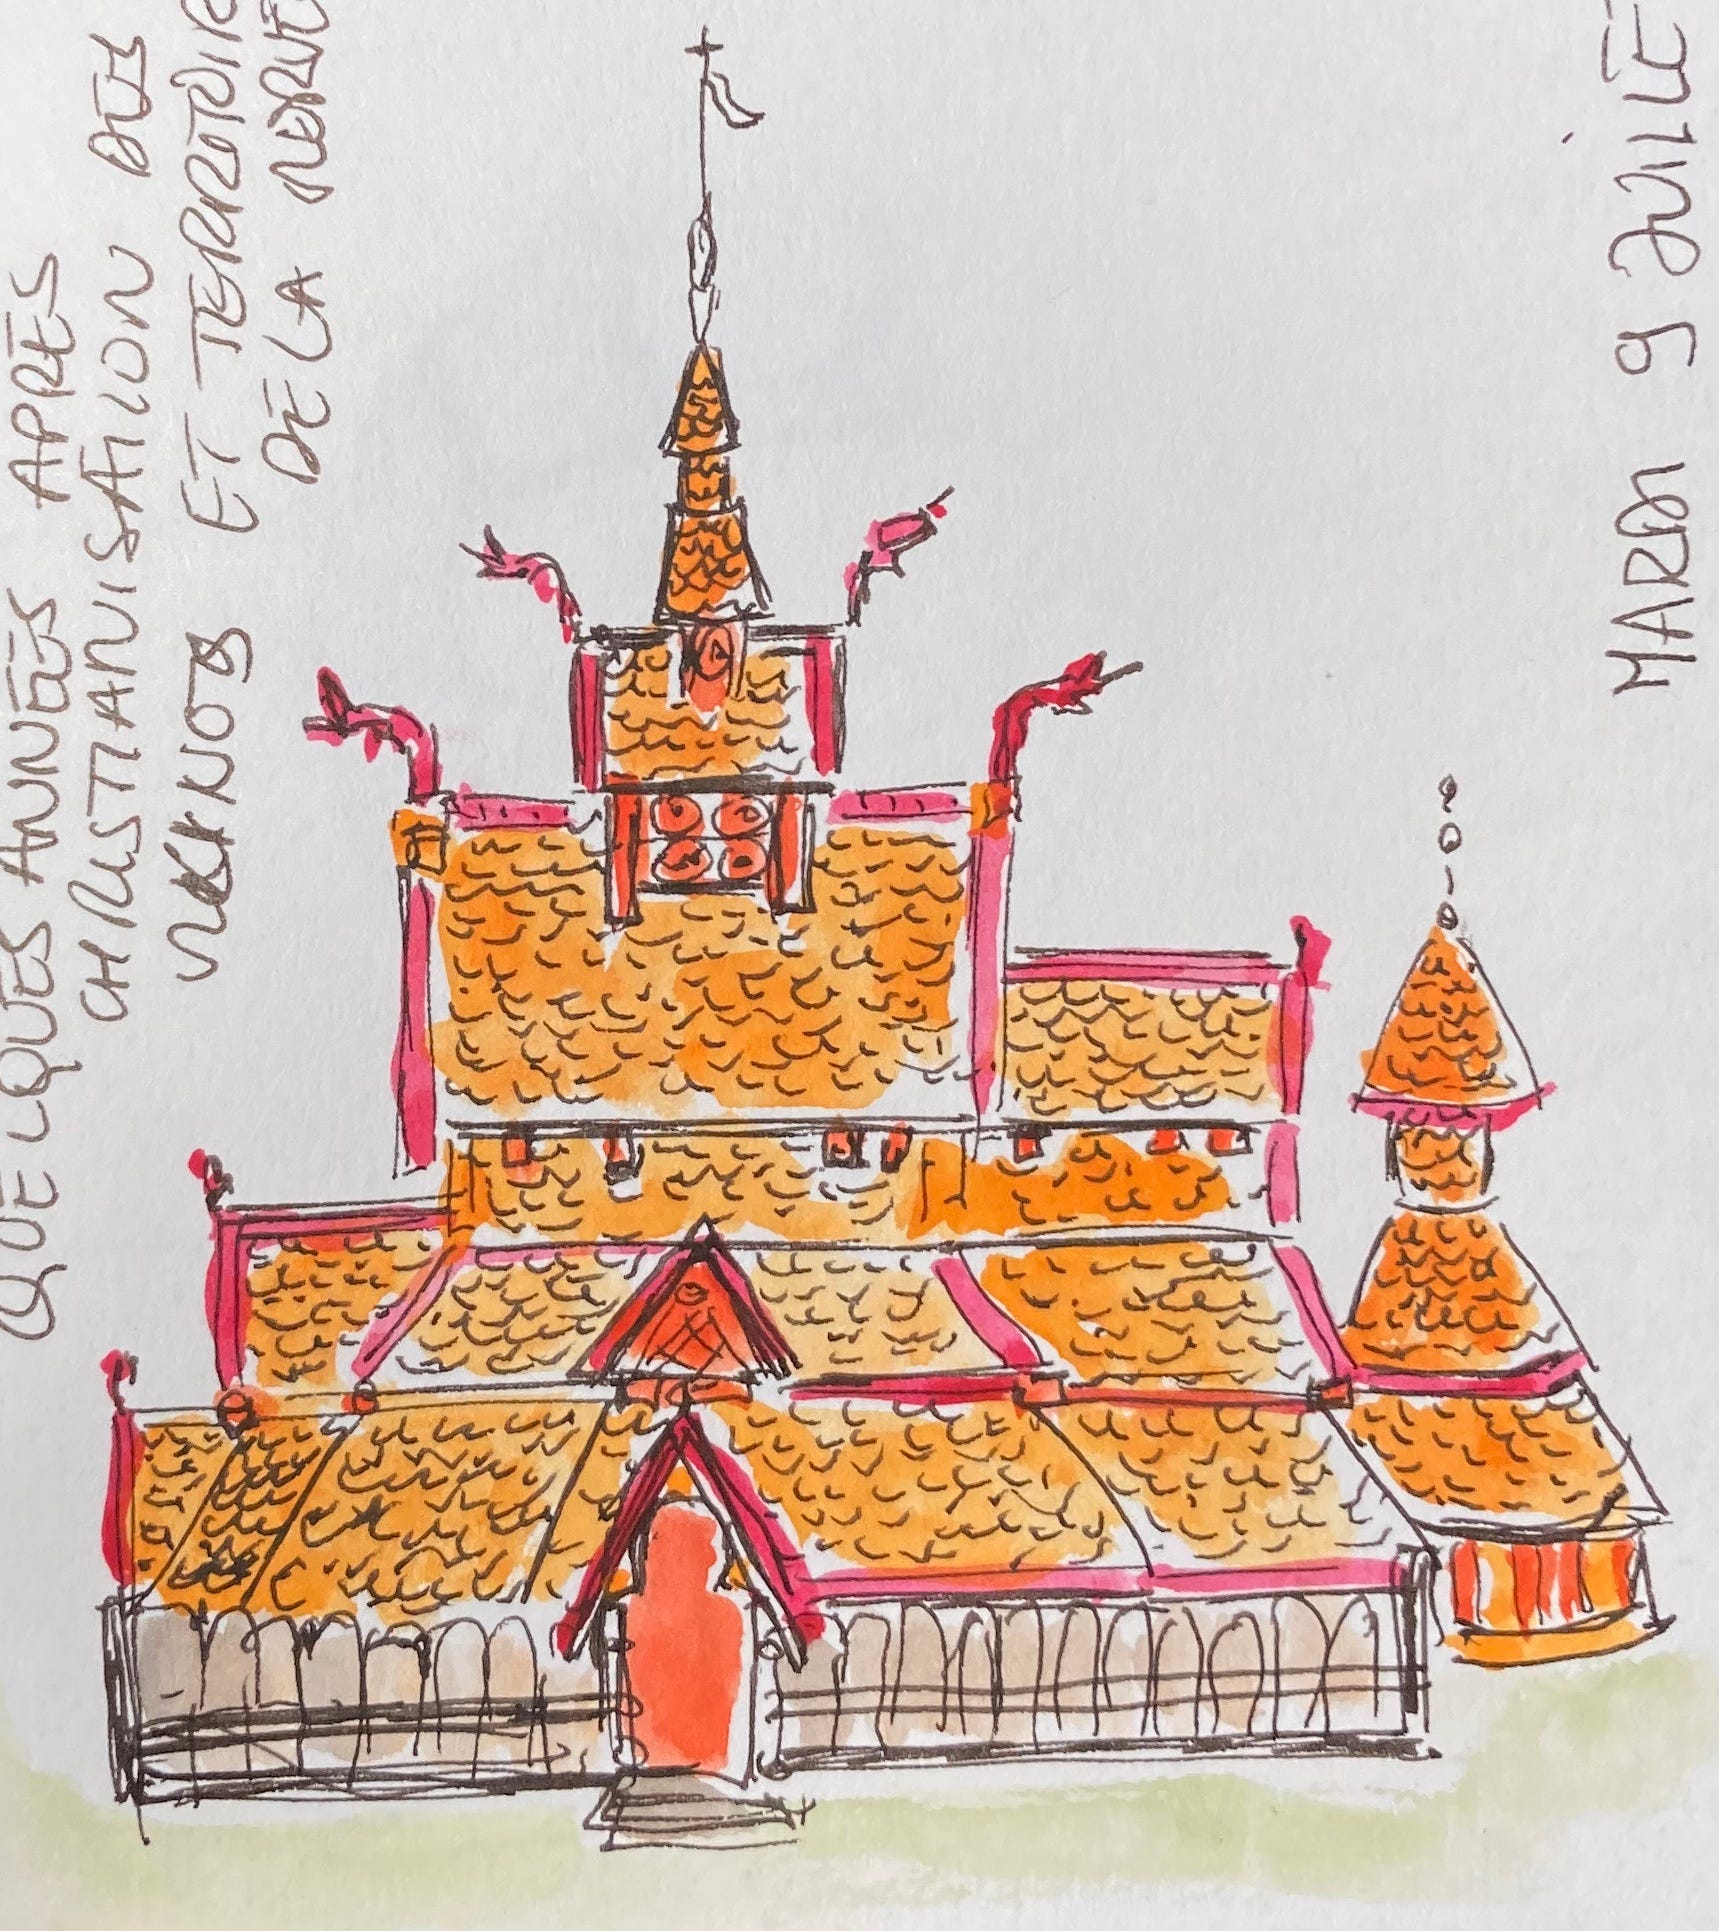 QUELQUES ANNÉES APRÈS
CHRISTIANISATION DES
VIKINGS ET TERRITOIR
DE LA
MARDI 9 JUILLE